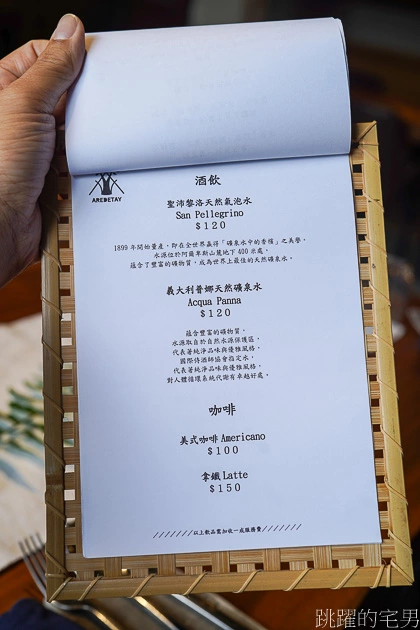 AREDETAY
酒飲
聖沛黎洛天然氣泡水
San Pellegrino
$120
1899年開始量產，即在全世界贏得「礦泉水中的香檳」之美譽，
水源位於阿爾卑斯山麓地下400米處，
蘊含了豐富的礦物質，成為世界上最佳的天然礦泉水。
義大利普娜天然礦泉水
Acqua Panna
$120
蘊含豐富的礦物質，
水源取自於自然水源保護區，
代表著純淨品味與優雅風格，
國際侍酒師協會指定水，
代表著純淨品味與優雅風格，
對人體循環系統代謝有卓越好處。
咖啡
美式咖啡 Americano
$100
拿鐵 Latte
$150
///////以上飲品需加收一成服務費///////
跳躍的宅男